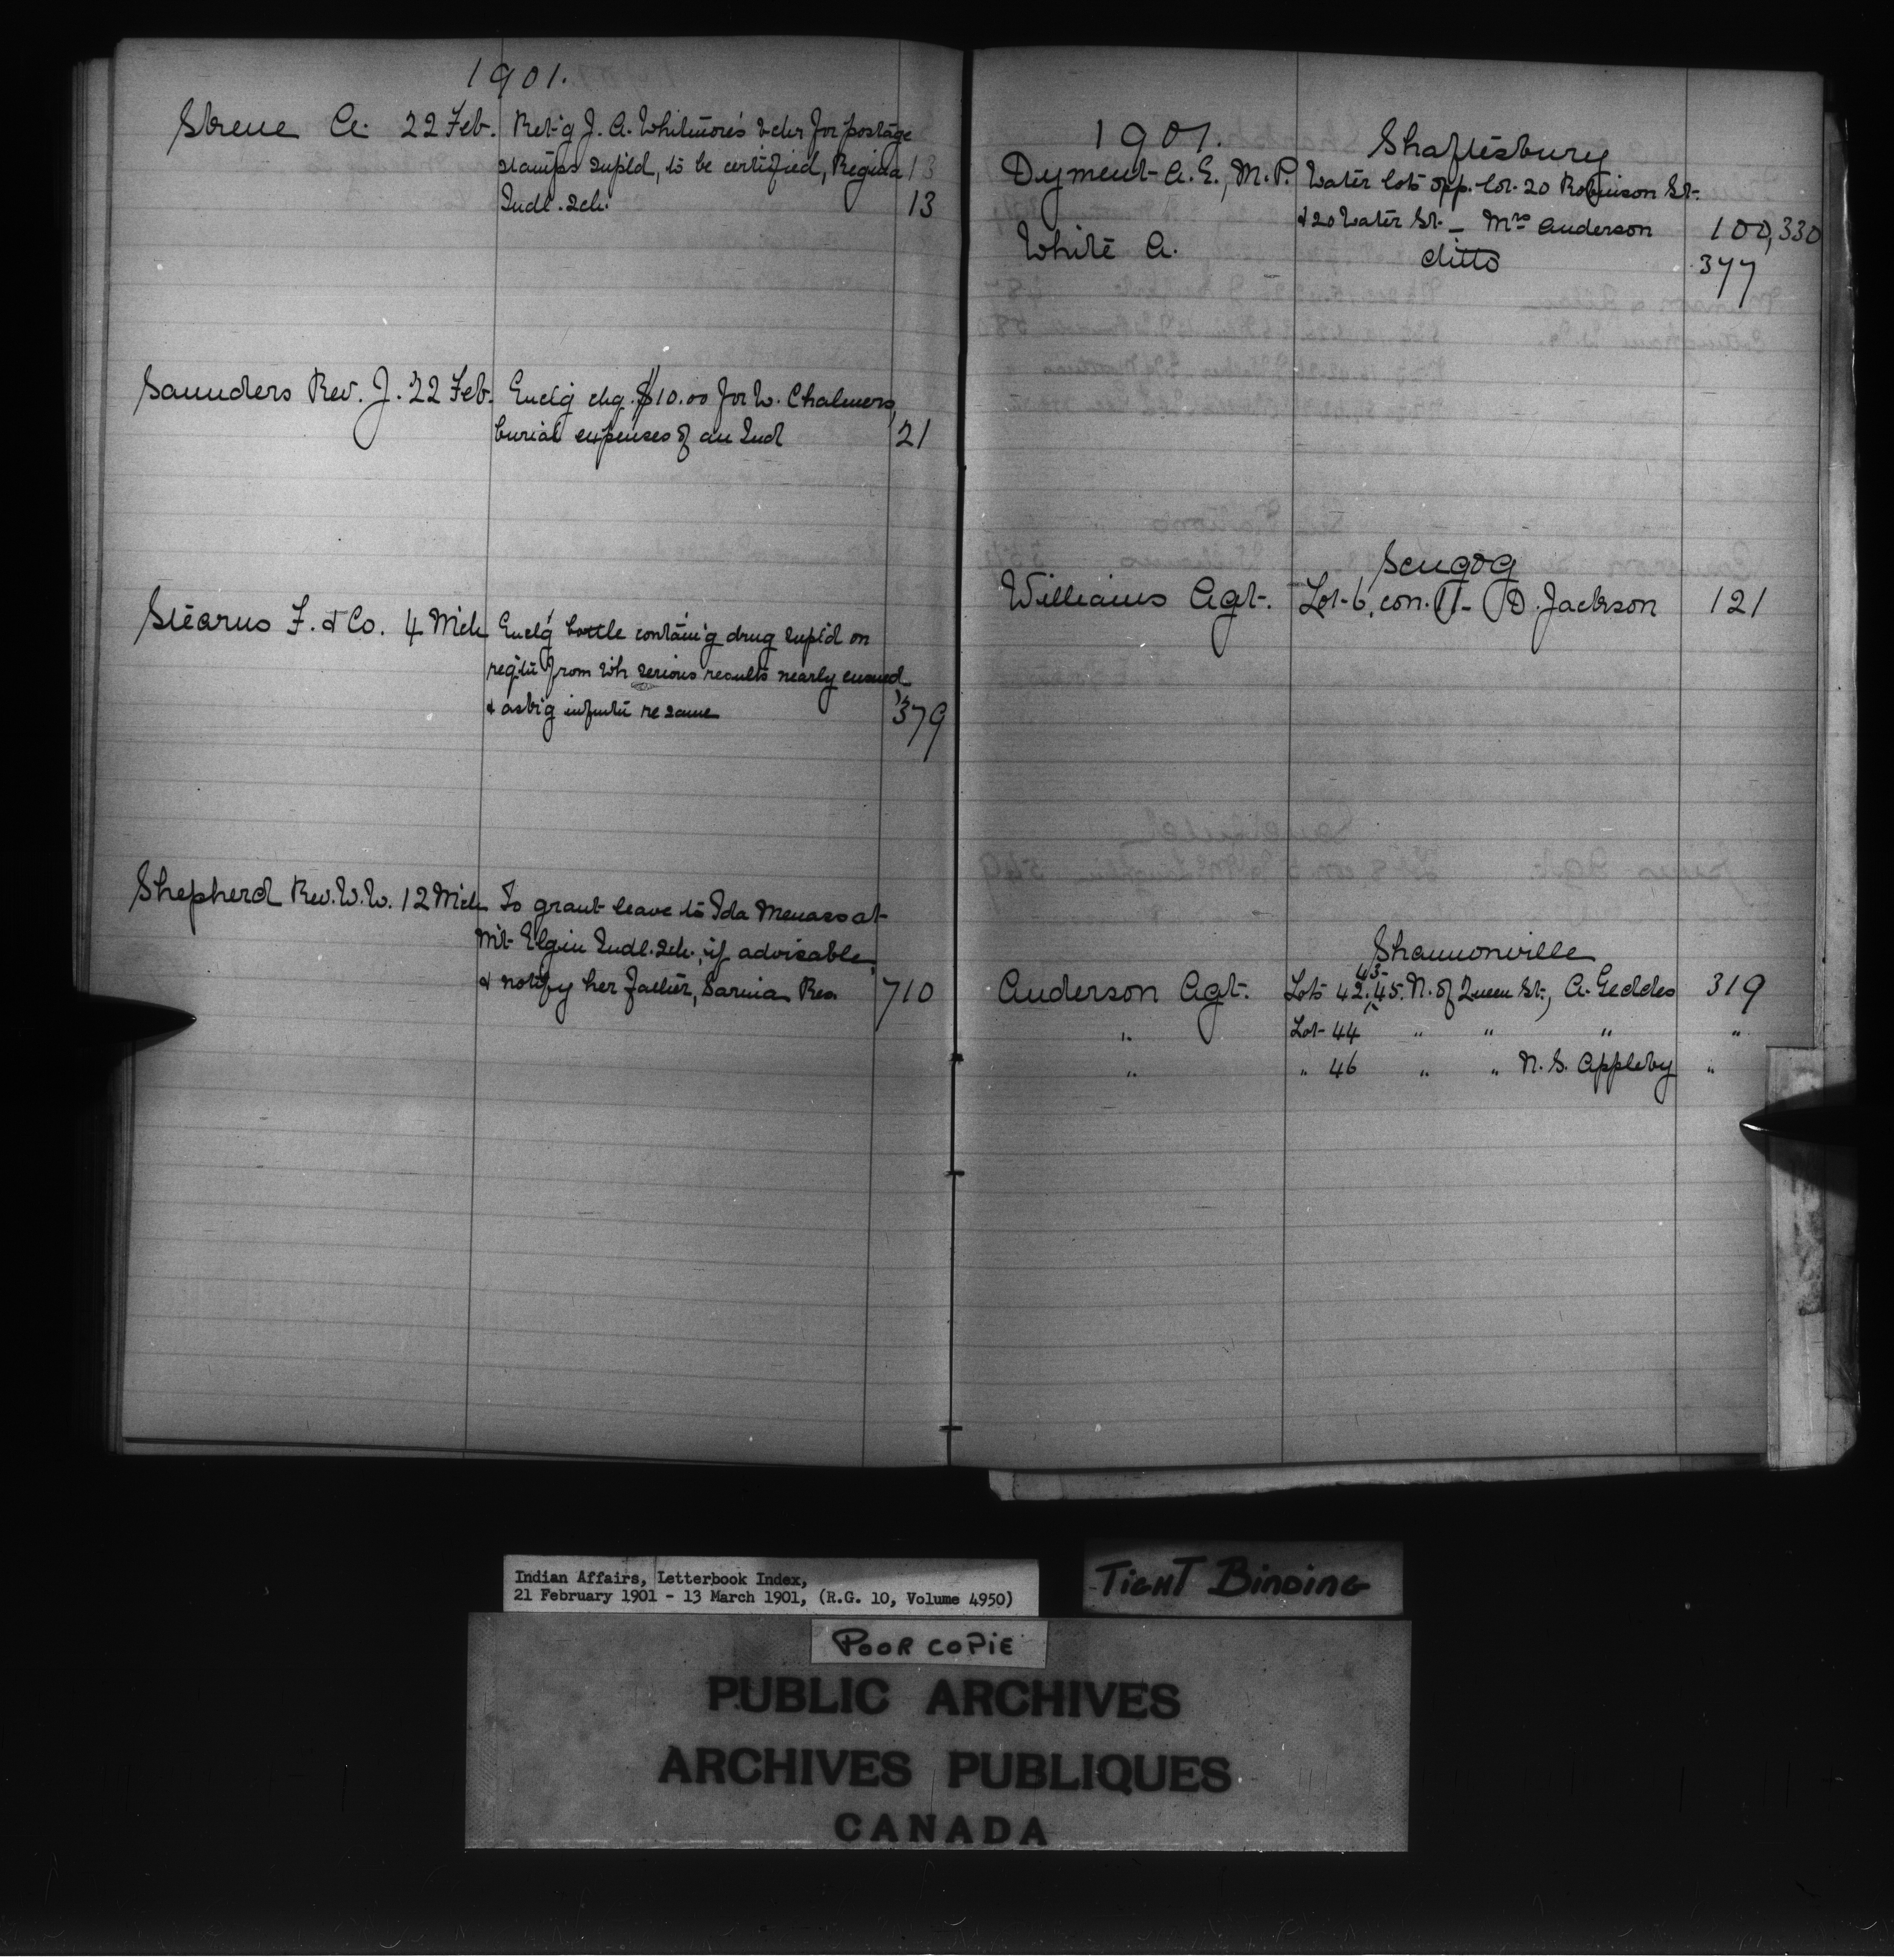 1901.
Skene A. 22 Feb. Ret'g J. A. Whitmore's vchr for postage
stamps supl'd, to be certified, Regina 13
Indl. Sch. 13
Saunders Rev. J. 22 Feb. Encl'g chq. $10.00 for W. Chalmers,
burial expenses of an Ind 21
Stearns F. & Co. 4 Mch Encl'g bottle contain'g drug supl'd on
req'tn from wh serious results nearly ensued
& ask'g infmtn re same 379
Shepherd Rev. W. W. 12 Mch To grant leave to Ida Menass at
Mt Elgin Indl. Sch., if advisable,
& notify her father, Sarnia Res. 710
1901.
Shaftesbury
Dyment A. E., M. P. Water lots opp. lot 20 Robinson St.
& 20 Water St. - Mrs Anderson 100, 330
White A. ditto 377
Scugog
Williams Agt. Lot 6, con. 11 - D. Jackson 121
Shannonville
Anderson Agt. Lots 42, 43, 45. N. of Queen St., A. Geddes 319
" Lot 44 " " " "
" " 46 " " N. S. Appleby "
Indian Affairs, Letterbook Index,
21 February 1901 - 13 March 1901, (R.G. 10, Volume 4950)
TIGHT BINDING
POOR COPIE
PUBLIC ARCHIVES
ARCHIVES PUBLIQUES
CANADA